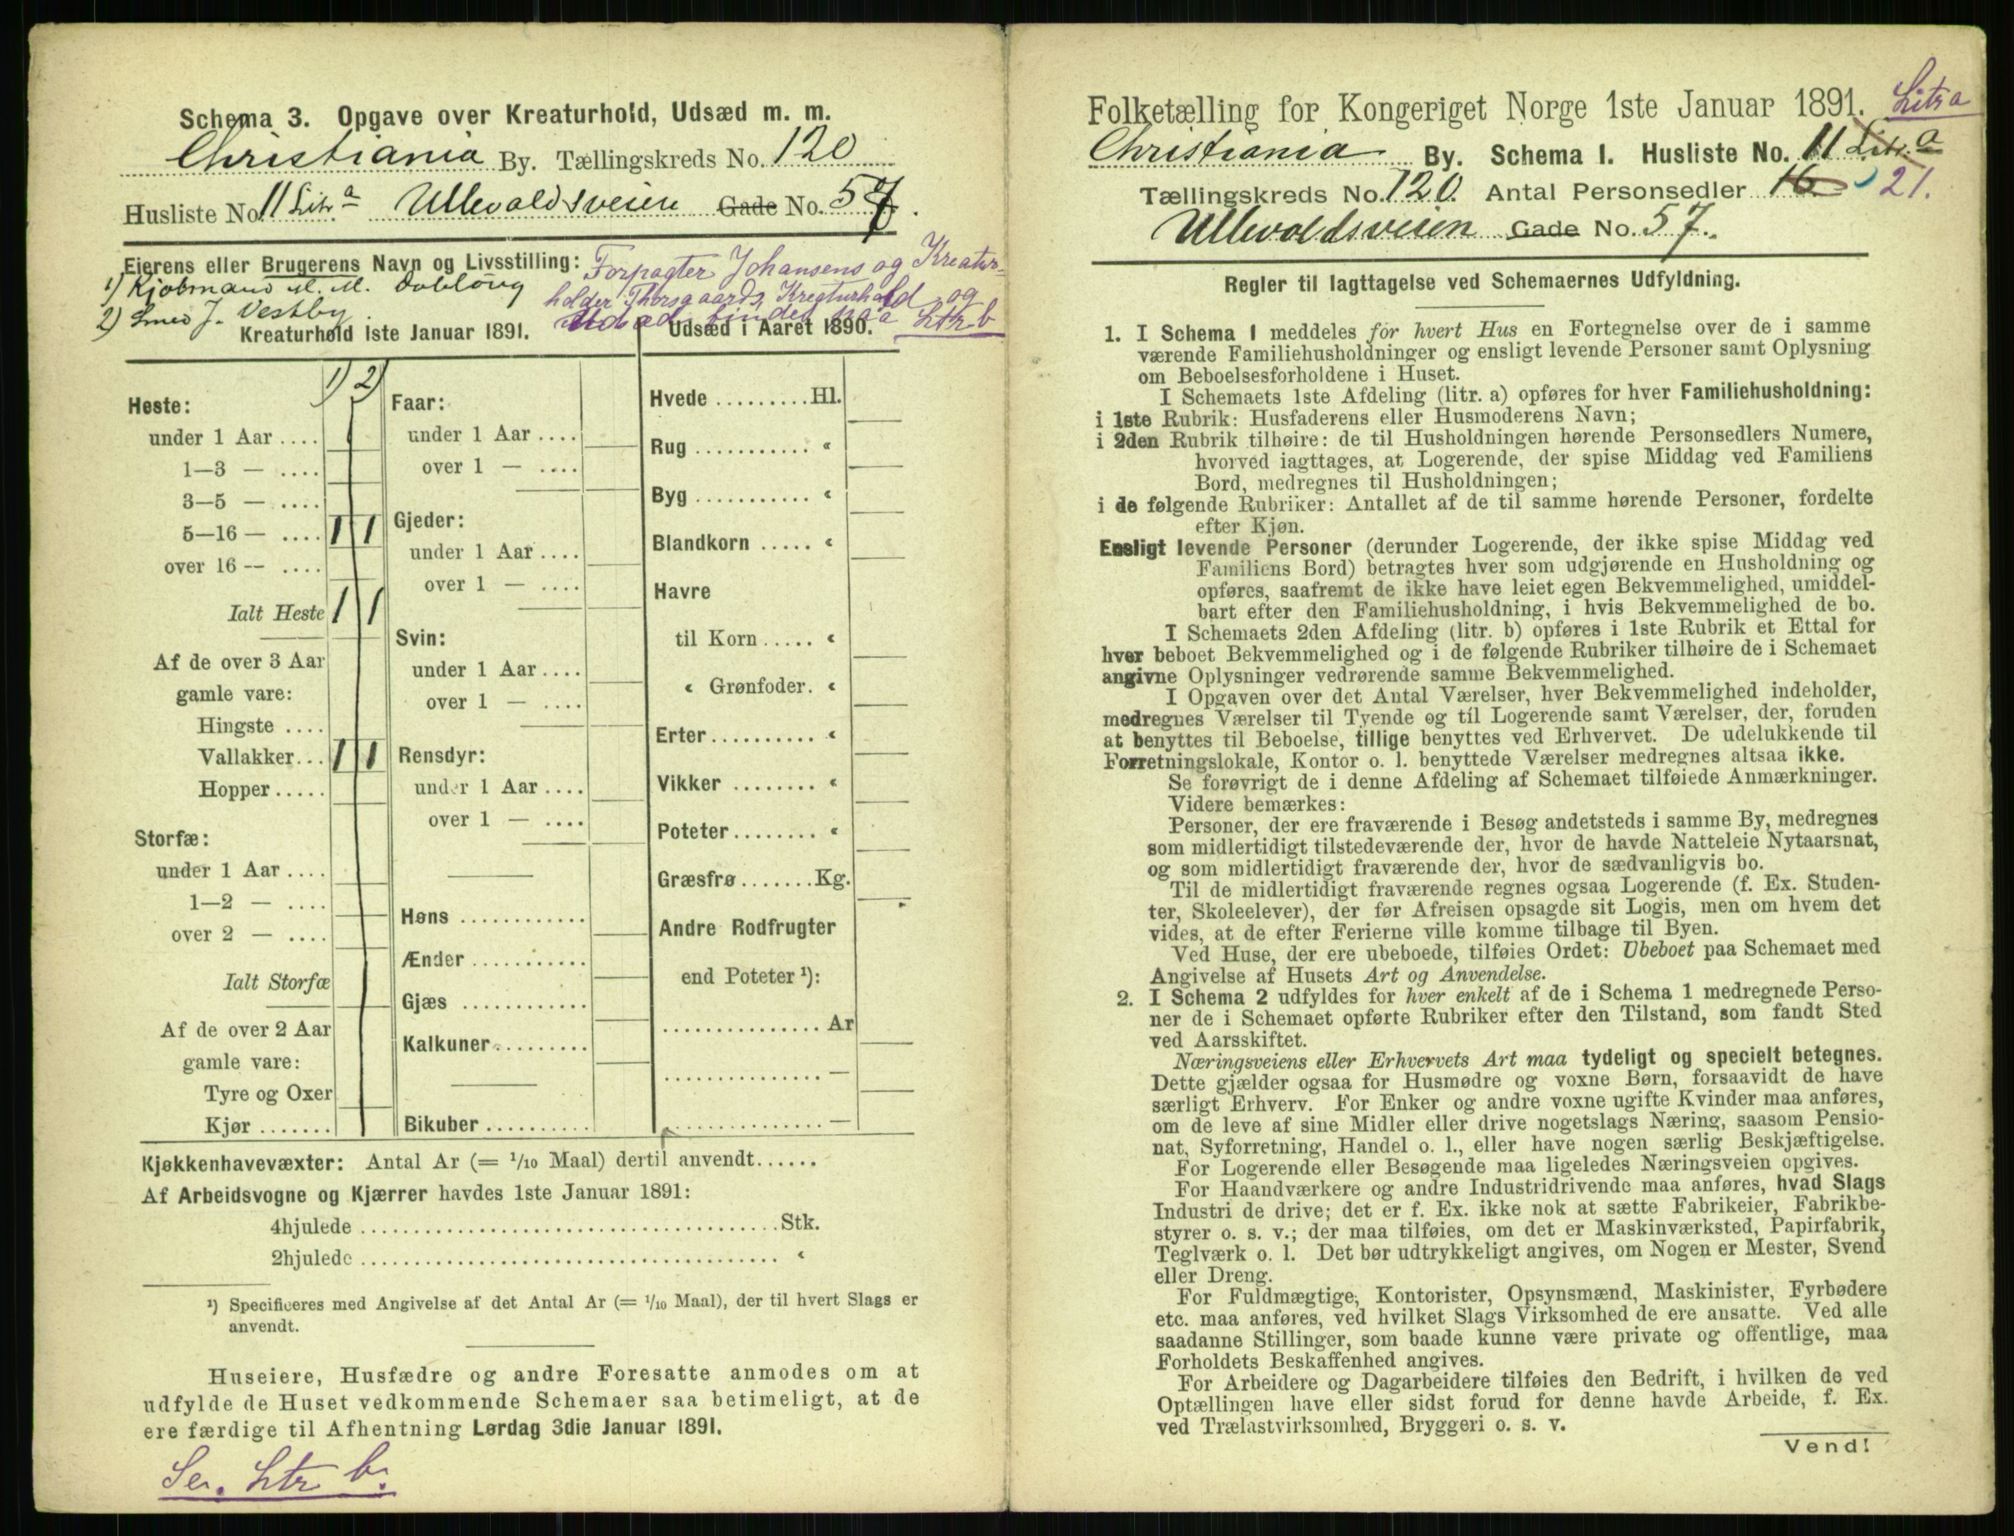 Schema 3. Opgave over Kreaturhold, Udsæd m. m.
Christiania By. Tællingskreds No. 120
Husliste No. 11 Litr a Ullevoldsveien Gade No. 57.
Eierens eller Brugerens Navn og Livsstilling: Forpagter Johansens og Kreatur-
1) Kjøbmand M. M. holder Thorsgaards Kreaturhold og
2) Smed J. Vestby. Udsæd findes paa Litr. b
Kreaturhold 1ste Januar 1891.
1) 2)
Heste:
under 1 Aar ....
1—3 — ....
3—5 — ....
5—16 — .... 1 1
over 16 — ....
Ialt Heste 1 1
Af de over 3 Aar
gamle vare:
Hingste ....
Vallakker... 1 1
Hopper .....
Storfæ:
under 1 Aar ....
1—2 — ....
over 2 — ....
Ialt Storfæ
Af de over 2 Aar
gamle vare:
Tyre og Oxer
Kjør .......
Faar:
under 1 Aar ....
over 1 — ....
Gjeder:
under 1 Aar ....
over 1 — ....
Svin:
under 1 Aar ....
over 1 — ....
Rensdyr:
under 1 Aar ....
over 1 — ....
Høns ............
Ænder ...........
Gjæs ............
Kalkuner.........
Bikuber ..........
Udsæd i Aaret 1890.
Hvede .........Hl.
Rug ........... «
Byg ........... «
Blandkorn ..... «
Havre
til Korn ..... «
« Grønfoder. «
Erter.......... «
Vikker ........ «
Poteter........ «
Græsfrø .......Kg.
Andre Rodfrugter
end Poteter ¹):
............... Ar
............... —
............... —
Kjøkkenhavevæxter: Antal Ar (= 1/10 Maal) dertil anvendt......
Af Arbeidsvogne og Kjærrer havdes 1ste Januar 1891:
4hjulede ........................................Stk.
2hjulede ........................................ «
¹) Specificeres med Angivelse af det Antal Ar (= 1/10 Maal), der til hvert Slags er
anvendt.
Huseiere, Husfædre og andre Foresatte anmodes om at
udfylde de Huset vedkommende Schemaer saa betimeligt, at de
ere færdige til Afhentning Lørdag 3die Januar 1891.
Se. Litr b.
Folketælling for Kongeriget Norge 1ste Januar 1891. Litr a
Christiania By. Schema 1. Husliste No. 11 Litr. a
Tællingskreds No. 120. Antal Personsedler 16 21.
Ullevoldsveien Gade No. 57.
Regler til Iagttagelse ved Schemaernes Udfyldning.
1. I Schema 1 meddeles for hvert Hus en Fortegnelse over de i samme
værende Familiehusholdninger og ensligt levende Personer samt Oplysning
om Beboelsesforholdene i Huset.
I Schemaets 1ste Afdeling (litr. a) opføres for hver Familiehusholdning:
i 1ste Rubrik: Husfaderens eller Husmoderens Navn;
i 2den Rubrik tilhøire: de til Husholdningen hørende Personsedlers Numere,
hvorved iagttages, at Logerende, der spise Middag ved Familiens
Bord, medregnes til Husholdningen;
i de følgende Rubriker: Antallet af de til samme hørende Personer, fordelte
efter Kjøn.
Ensligt levende Personer (derunder Logerende, der ikke spise Middag ved
Familiens Bord) betragtes hver som udgjørende en Husholdning og
opføres, saafremt de ikke have leiet egen Bekvemmelighed, umiddel-
bart efter den Familiehusholdning, i hvis Bekvemmelighed de bo.
I Schemaets 2den Afdeling (litr. b) opføres i 1ste Rubrik et Ettal for
hver beboet Bekvemmelighed og i de følgende Rubriker tilhøire de i Schemaet
angivne Oplysninger vedrørende samme Bekvemmelighed.
I Opgaven over det Antal Værelser, hver Bekvemmelighed indeholder,
medregnes Værelser til Tyende og til Logerende samt Værelser, der, foruden
at benyttes til Beboelse, tillige benyttes ved Erhvervet. De udelukkende til
Forretningslokale, Kontor o. l. benyttede Værelser medregnes altsaa ikke.
Se forøvrigt de i denne Afdeling af Schemaet tilføiede Anmærkninger.
Videre bemærkes:
Personer, der ere fraværende i Besøg andetsteds i samme By, medregnes
som midlertidigt tilstedeværende der, hvor de havde Natteleie Nytaarsnat,
og som midlertidigt fraværende der, hvor de sædvanligvis bo.
Til de midlertidigt fraværende regnes ogsaa Logerende (f. Ex. Studen-
ter, Skoleelever), der før Afreisen opsagde sit Logis, men om hvem det
vides, at de efter Ferierne ville komme tilbage til Byen.
Ved Huse, der ere ubeboede, tilføies Ordet: Ubeboet paa Schemaet med
Angivelse af Husets Art og Anvendelse.
2. I Schema 2 udfyldes for hver enkelt af de i Schema 1 medregnede Perso-
ner de i Schemaet opførte Rubriker efter den Tilstand, som fandt Sted
ved Aarsskiftet.
Næringsveiens eller Erhvervets Art maa tydeligt og specielt betegnes.
Dette gjælder ogsaa for Husmødre og voxne Børn, forsaavidt de have
særligt Erhverv. For Enker og andre voxne ugifte Kvinder maa anføres,
om de leve af sine Midler eller drive nogetslags Næring, saasom Pensio-
nat, Syforretning, Handel o. l., eller have nogen særlig Beskjæftigelse.
For Logerende eller Besøgende maa ligeledes Næringsveien opgives.
For Haandværkere og andre Industridrivende maa anføres, hvad Slags
Industri de drive; det er f. Ex. ikke nok at sætte Fabrikeier, Fabrikbe-
styrer o. s. v.; der maa tilføies, om det er Maskinværksted, Papirfabrik,
Teglværk o. l. Det bør udtrykkeligt angives, om Nogen er Mester, Svend
eller Dreng.
For Fuldmægtige, Kontorister, Opsynsmænd, Maskinister, Fyrbødere
etc. maa anføres, ved hvilket Slags Virksomhed de ere ansatte. Ved alle
saadanne Stillinger, som baade kunne være private og offentlige, maa
Forholdets Beskaffenhed angives.
For Arbeidere og Dagarbeidere tilføies den Bedrift, i hvilken de ved
Optællingen have eller sidst forud for denne havde Arbeide, f. Ex.
ved Trælastvirksomhed, Bryggeri o. s. v.
Vend!